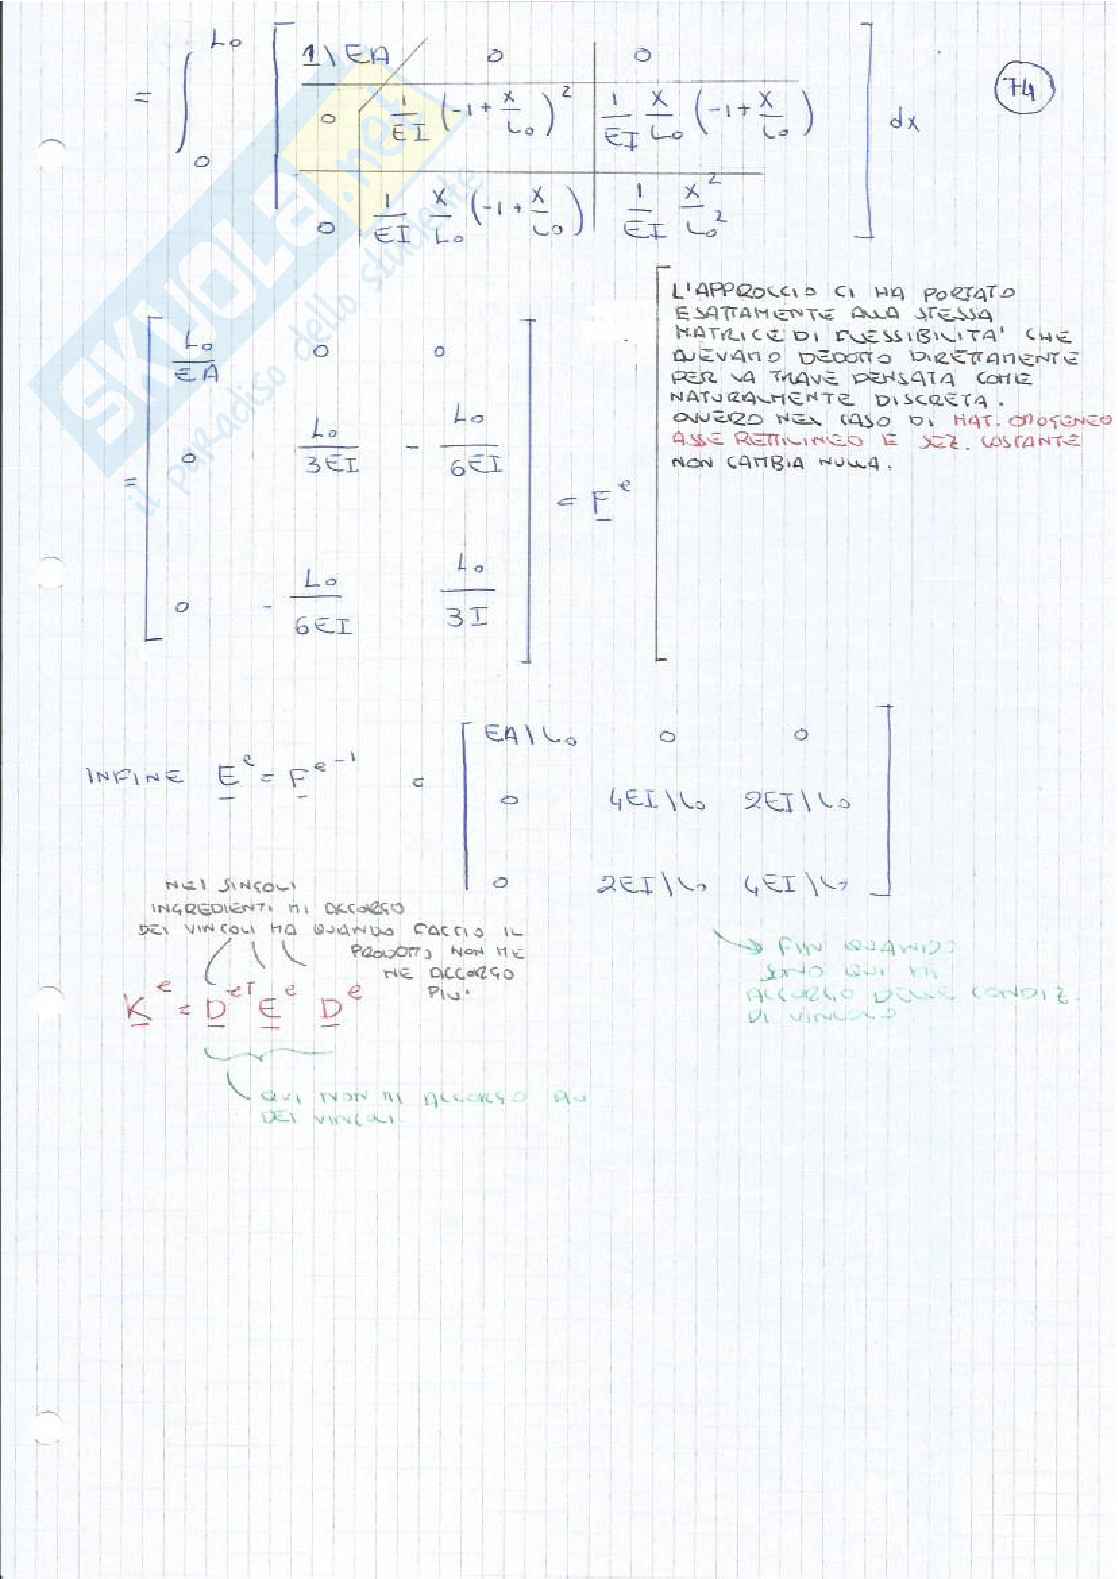 = ∫ 0 L₀ [ 1\EA 0 0
0 1/EI (-1+x/L₀)² 1/EI x/L₀ (-1+x/L₀)
0 1/EI x/L₀ (-1+x/L₀) 1/EI x²/L₀² ] dx
74
= [ L₀/EA 0 0
0 L₀/3EI - L₀/6EI
0 - L₀/6EI L₀/3I ] = F^e
L'APPROCCIO CI HA PORTATO
ESATTAMENTE ALLA STESSA
MATRICE DI FLESSIBILITA' CHE
AVEVAMO DEDOTTO DIRETTAMENTE
PER LA TRAVE PENSATA COME
NATURALMENTE DISCRETA.
OVVERO NEL CASO DI MAT. OMOGENEO
ASSE RETTILINEO E SEZ. COSTANTE
NON CAMBIA NULLA.
INFINE E^e = F^e-1 = [ EA\L₀ 0 0
0 4EI\L₀ 2EI\L₀
0 2EI\L₀ 4EI\L₀ ]
NEI SINGOLI
INGREDIENTI MI ACCORGO
DEI VINCOLI MA QUANDO FACCIO IL
PRODOTTO NON ME
NE ACCORGO
PIU'
K^e = D^eT E^e D^e
FIN QUANDO
SONO QUI MI
ACCORGO DELLE CONDIZ.
DI VINCOLO
QUI NON MI ACCORGO PIU
DEI VINCOLI
SKUOLA.net
il paradiso dello studente